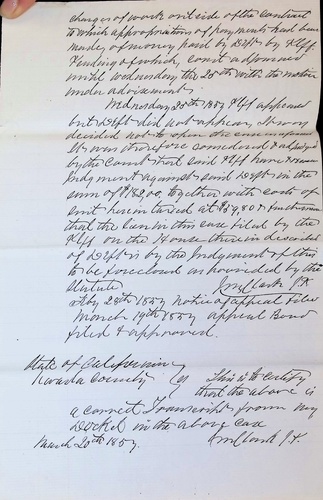 charges of work outside of the contract
to which appropriations of payments had been
made, of money paid by Deft by Plff
Pending which, court adjourned
until Wednesday the 25th with the motion
under advisement.
Wednesday 25th 1857 Plff appeared
but Deft did not appear, It was
decided not to open the case
It was therefore considered & adjudged
by the Court that said Plff have & recover
Judgment against said Deft in the
sum of $182.00, together with costs of
suit herein taxed at $39,80 & furthermore
that the Lien in this case filed by the
Plff on the House therein described
of Deft is by the Judgment of this
to be foreclosed as provided by the
Statute
Clark J.P.
28th 1857 notice of appeal Filed
March 19th 1857 appeal Bond
filed & approved.
State of California
Nevada County ss This is to certify
that the above is
a correct Transcript from my
Docket in the above case
March 20th 1857. Clark J.P.